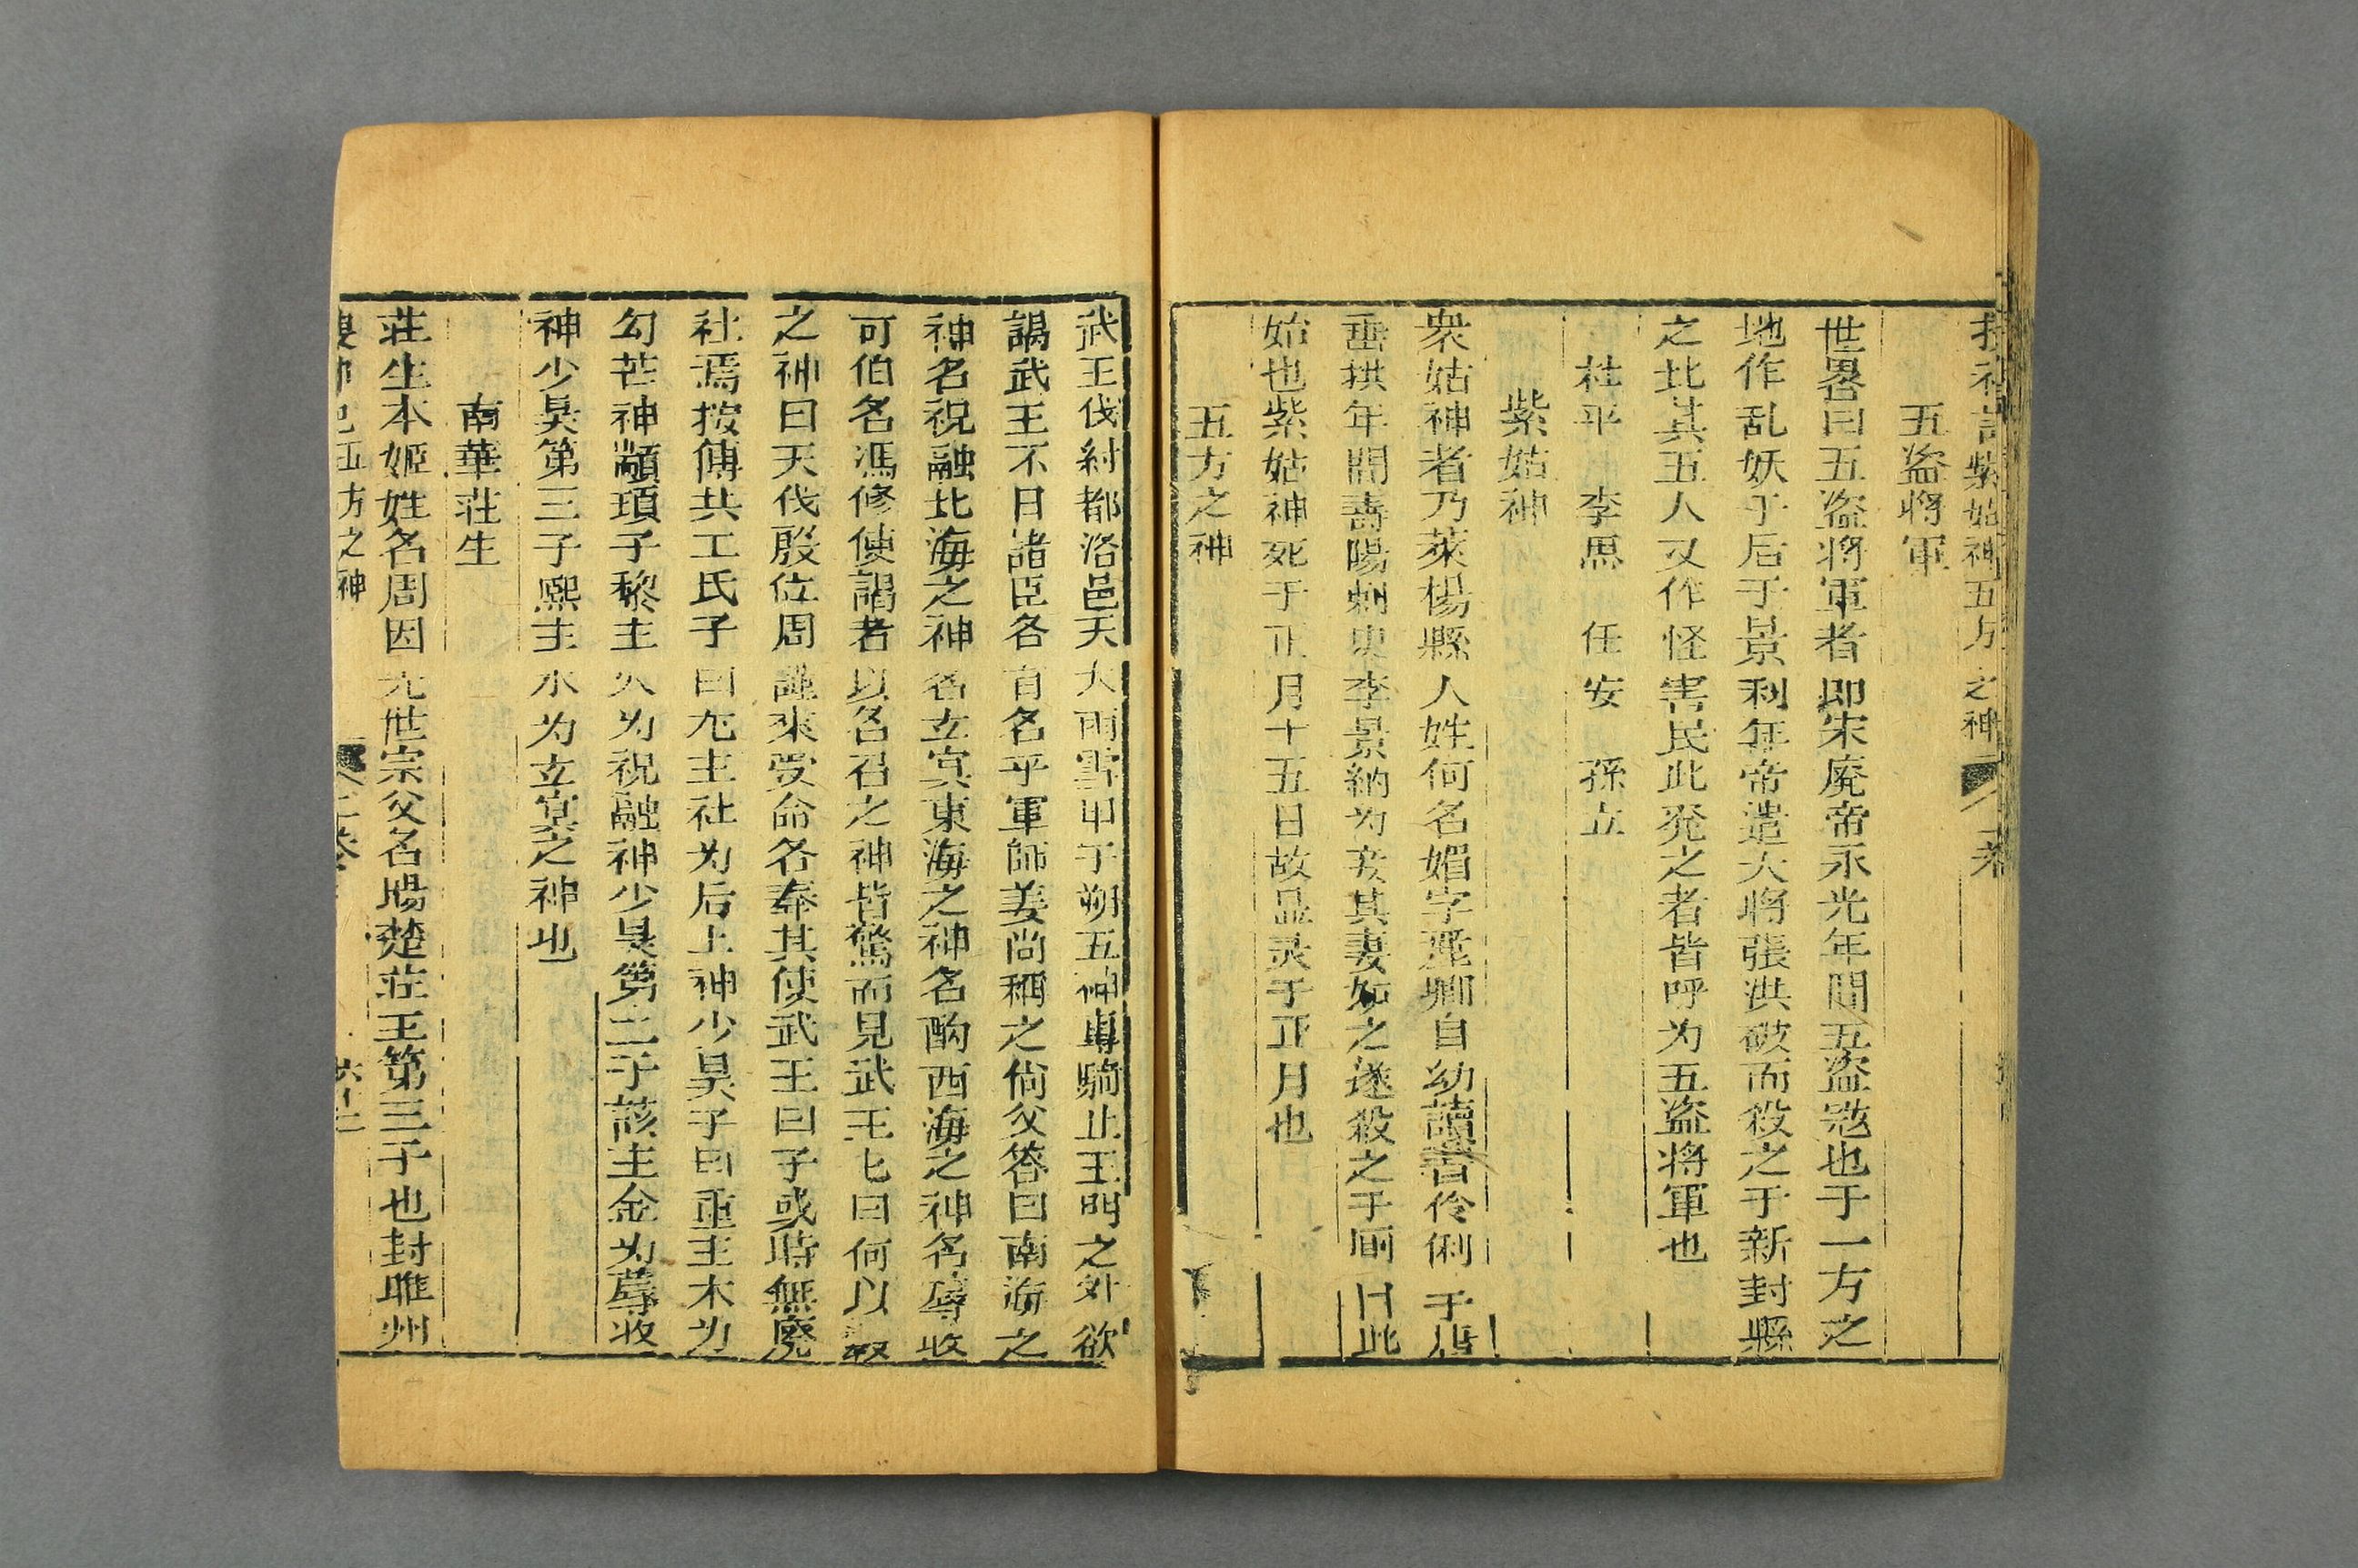 紫姑神五方之神
五盜將軍
世畧曰五盗将軍者即宋廃帝永光年間五盗冦也于一方之
地作乱妖于后于景利年帝遣大将張洪破而殺之于新封縣
之北其五人又作怪害民此発之者皆呼为五盗将軍也
杜平 李思 任安 孫立
紫姑神
衆姑神者乃萊楊縣人姓何名媚字卿自幼讀書伶俐于
垂拱年間壽陽刺史李景納为妾其妻妬之遂殺之于厠此
始也紫姑神死于正月十五日故显灵于正月也
五方之神
武王伐紂都洛邑天大雨雪甲子朔五神車騎止王門之外欲
謁武王不日諸臣各有名乎軍師姜尚稱之尙父答曰南海之
神名祝融北海之神名玄寞東海之神名勾西海之神名蓐收
河伯名馮修使謁者以名召之神皆驚而見武王七曰何以
之神曰天伐殷位周謹來受命各奉其使武王曰予或時無廢
社焉按傳共工氏子曰尢主社为后土神少昊子曰重主木为
勾芒神顓頊子黎主火为祝融神少昊第二子該主金为蓐收
神少昊第三子熙主水为玄寞之神也
南華荘生
荘生本姬姓名周因元世宗父名暘楚荘王第三子也封睢州
五方之神